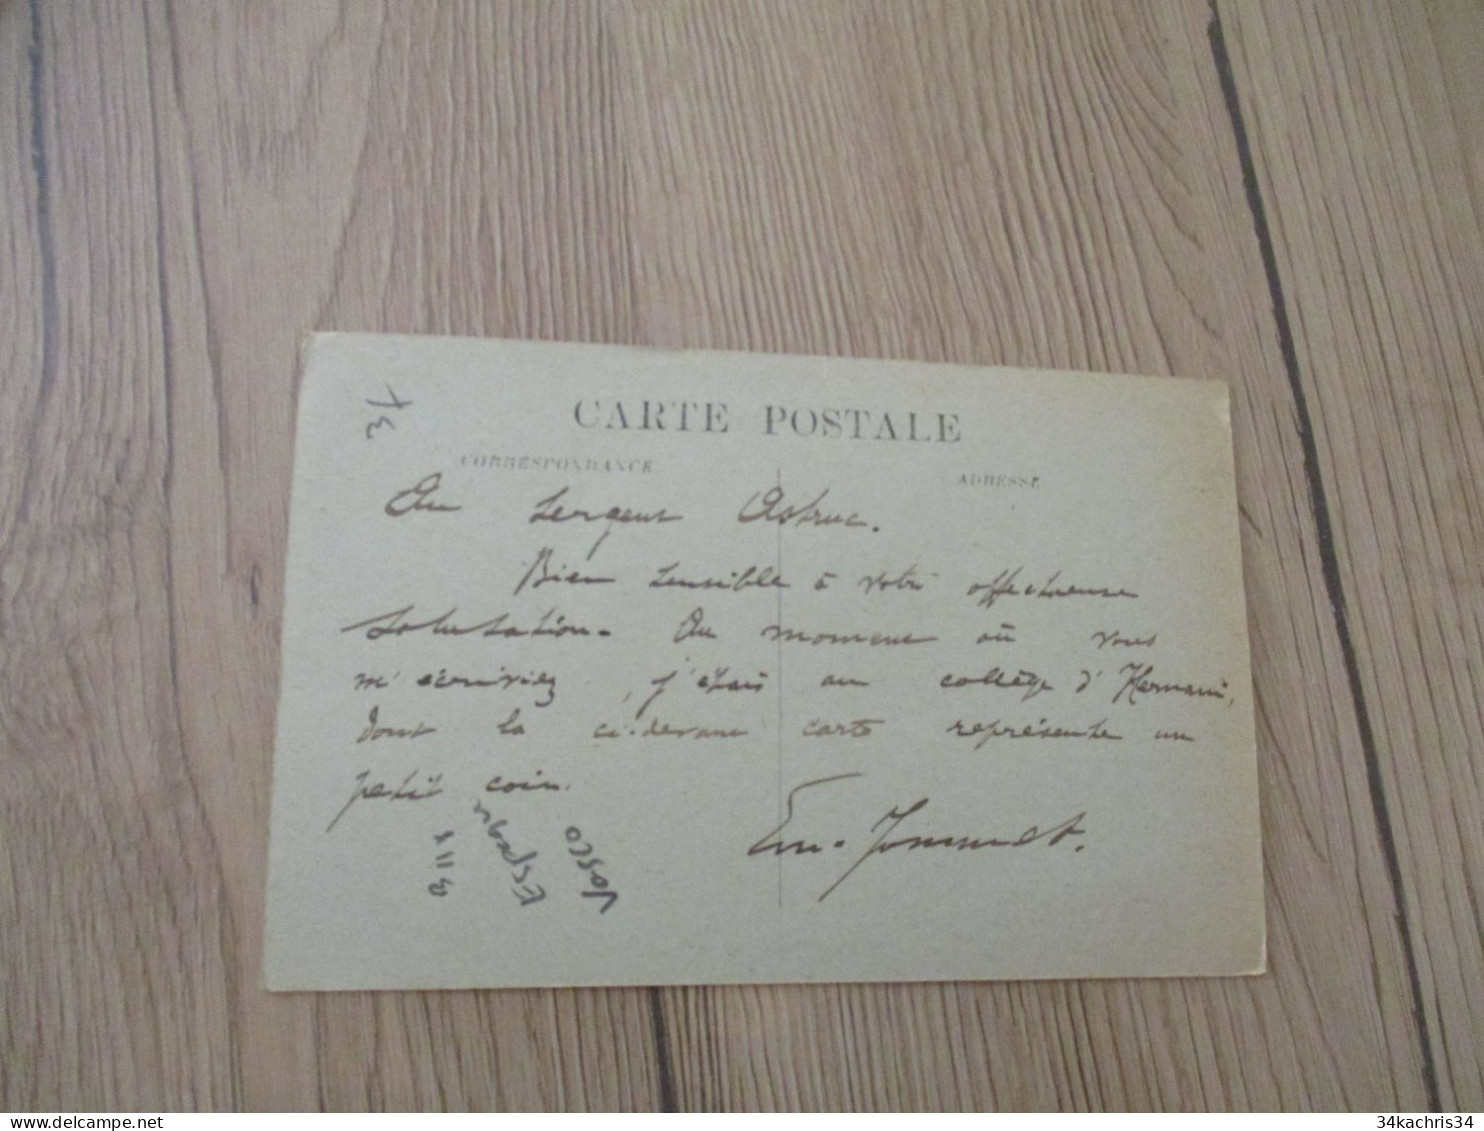 CARTE POSTALE
CORRESPONDANCE
ADRESSE
Au Sergent Astruc.
Bien sensible à votre affectueuse
salutation. Au moment où vous
m'écriviez, j'étais au collège d'Hernani,
dont la ci-devant carte représente un
petit coin.
Em. Jommet.
Espagne
34kachris34